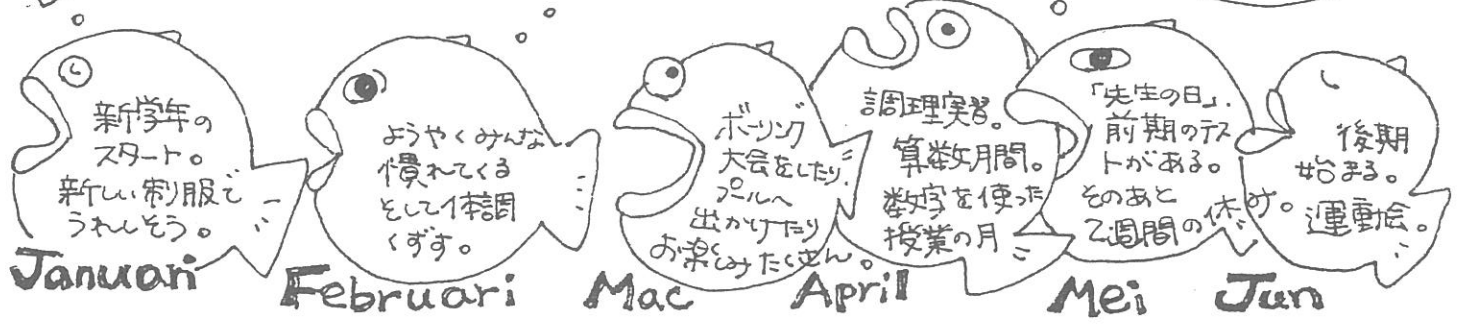 新学年の
スタート。
新しい制服で
うれしそう。
Januari
ようやくみんな
慣れてくる
そして体調
くずす。
Februari
ボーリング
大会をしたり、
プールへ
出かけたり
お楽しみたくさん。
Mac
調理実習。
算数月間。
数字を使った
授業の月
April
「先生の日」、
前期のテス
トがある。
そのあと
2週間の休み。
Mei
後期
始まる。
運動会。
Jun